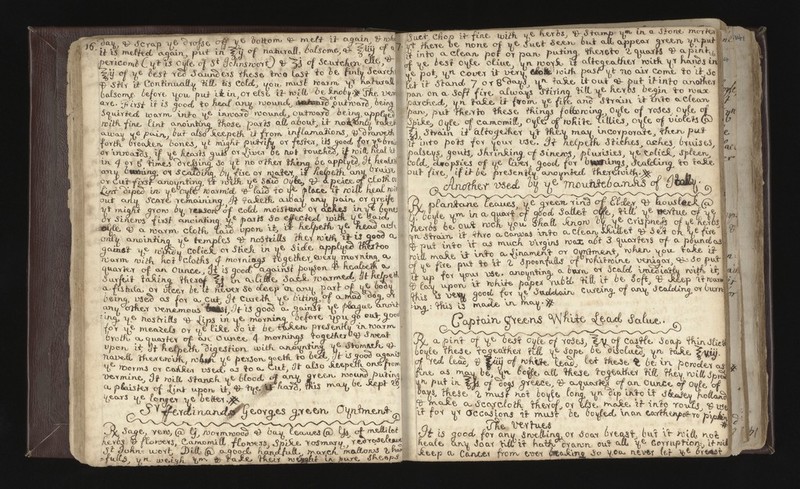 16.
day, & scrap ye drosse off ye bottom & melt it again, & when
it is melted again, put in of naturall balsome, & of
pericond (yt is oyle of St Johnswort) & of scutchin
of ye best red Saunders these two last to be finly Searsh
& Stir it Continually till its cold, you must warm ye naturall
balsome before you put it in or else it will be knoby. The ver
are. First it is good to heal any wound, outward being
Squirted warm into ye inward wound, outward being applyed
with fine Lint anointing those parts all about, it not only takes
away ye pain, but also keepeth it from inflamations, & draweth
forth broken bones, yt might putrify or fester, its good for
or inwards, if ye heart guts or liver be not touched, it will heal it
in 4 or 5 times dressing so yt no other thing be applyed. It healeth
any burning, or scalding by fire or water, it helpeth any bruise
or Cut first anoynting it with ye said oyle, & a peice of cloth or
Lint diped in ye oyle warmed & laid to ye place it will heal with
out any scare remaining. It taketh away any pain or greife
yt might grow by reason of cold moisture or aches in ye bones
or sinews first anointing ye parts so effected with ye said
oyle & a warm cloth laid upon it, it helpeth ye head ach
only anointing ye temples & nostrills therwith it is good a
gainst ye windy colick or stich in ye side applyed thereto
warm with hott cloths 4 mornings together every morning a
quarter of an ounce, It is good against poyson & healeth a
Surfeit taking therof in a little Sack warmed. It helpeth
a fistula or ulcer be it never so deep in any part of ye body
being used as for a Cut, It cureth ye biting of a mad dog, or
any other venemous It is good a gainst ye plague anoint
ing, ye nostrills & lips in ye morning before you go out, good
for ye meazels or ye like so it be taken presently in warm
broth a quarter of an ounce 4 mornings together & sweat
upon it It helpeth digestion with anoynting ye stomach &
navell therewith, when ye person goeth to bed, It is good against
ye worms or canker used as to a Cut, It also keepeth one from
vermine, It will stanch ye blood of any green wound puting
a plaister of Lint upon it, & tye it hard, this may be kept 20
years ye longer ye better.
Sr Ferdinando Georges green Oyntment
Rx Sage, rose, @ Wormwood & bay leaues @ of melilot
herbs & flowers, Camomill flowers, Spike rosmary, redroseleaue
St Johns wort, Dill @ a good handfull, march mallows 2 hand
fulls, yn weigh ym & take their weight in pure sheeps
Suet Chop it fine with ye herbs, & Stamp ym in a Stone morter
yt there be none of ye Suet seen but all appear green yn put
it into a clean pot or pan puting thereto 2 quarts & a pint
of ye best oyle Olive, yn work it altogeather with yr hands in
ye pot, yn cover it very with past yt no air Come to it so
let it stand 7 or 8 days, yn take it out & put it into another
pan on a Soft fire, always stiring till ye herbs begin to wax
parched, yn take it from ye fire and strain it into a clean
pan, put therto these things following oyle of roses oyle of
Spike, oyle of camomill, oyle of white lillies, oyle of violets @
Strain it altogether yt they may incorporate, then put
it into pots for your use. It helpeth stiches, aches bruises
palseys, gouts, shrinking of sinews, plurisies, ye colick, spleen,
cold, dropsies of ye liver, good for burnings, healding to take
out fire, if it be presently anoynted therewith.
Another used by ye mountebanks of Italy.
Rx plantane leaues, ye green rind of Elder & housleek @
boyle ym in a quart of good sallet oyle, till ye vertue of ye
herbs be out wch you shall know by ye Crispness of ye herbs
yn Strain it thro a canvas into a clean skillet & set on ye fire
& put into it as much virgins wax not 3 quarters of a pound as
will make it into a linament or Oyntment, when you take it
of ye fire put to it 2 spoonfulls of whitwine venigar, & so put
it up for yous use. anoynting a burn or scald imediatly with it,
& lay upon it white paper rubd till it be soft, & keep it warm
This is very good for ye Suddain Cureing of any scalding or burn
ing. This is made in may.
Captain Greens White Lead Salue.
Rx a pint of ye best oyle of roses, of castle soap thin slict
boyle these together till ye sope be disolued, yn take
of red lead, & of white lead, let these 2 be in powders as
fine as may be, yn boyle all these together till they will spin
yn put in of dogs greece, & a quarter of an ounce of oyle of
bays, these 2 must not boyle long, yn dip into it sleasey holland
& make a sorcloth therof, or Else, make it into rouls, & use
it for yr occasions it must be boyled in an earthenpot or pipkin
The Vertues
It is good for any swelling, or soar breast, but it will not
heale any soar till it hath drawn out all ye Corruption, it will
keep a Cancer from ever breaking so you never let ye breast